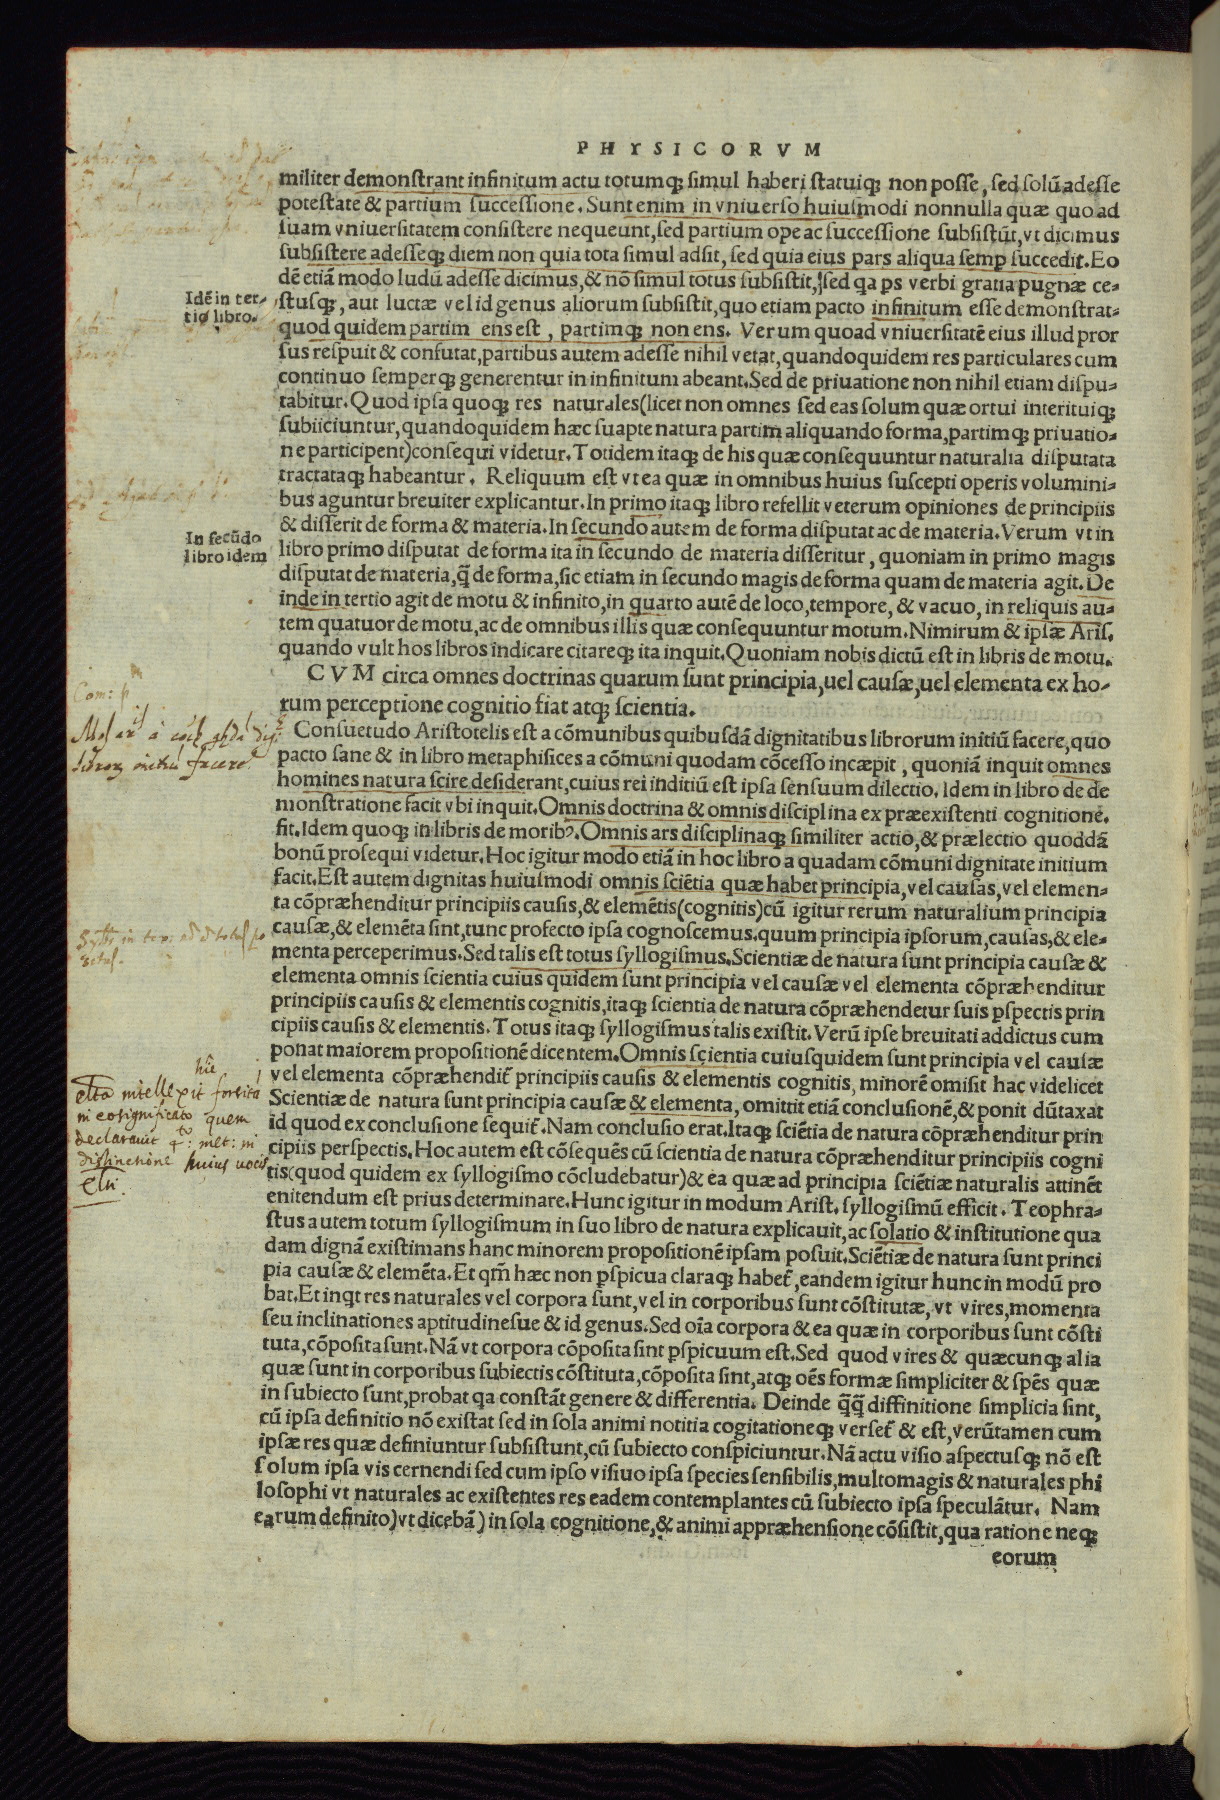 PHYSICORVM
militer demonstrant infinitum actu totumq; simul haberi statuiq; non posse, sed solũ adesse
potestate & partium successione. Sunt enim in vniuerso huiusmodi nonnulla quæ quo ad
suam vniuersitatem consistere nequeunt, sed partium ope ac successione subsistũt, vt dicimus
subsistere adesseq; diem non quia tota simul adsit, sed quia eius pars aliqua semp succedit. Eo
dẽ etiã modo ludũ adesse dicimus, & nõ simul totus subsistit, sed qa ps verbi gratia pugnæ ce-
Idẽ in ter-
tio libro.
stusq;, aut luctæ vel id genus aliorum subsistit, quo etiam pacto infinitum esse demonstrat-
quod quidem partim ens est, partimq; non ens. Verum quoad vniuersitatẽ eius illud pror
sus respuit & confutat, partibus autem adesse nihil vetat, quandoquidem res particulares cum
continuo semperq; generentur in infinitum abeant. Sed de priuatione non nihil etiam dispu-
tabitur. Quod ipsa quoq; res naturales (licet non omnes sed eas solum quæ ortui interituiq;
subiiciuntur, quandoquidem hæc suapte natura partim aliquando forma, partimq; priuatio-
ne participent) consequi videtur. Totidem itaq; de his quæ consequuntur naturalia disputata
tractataq; habeantur. Reliquum est vt ea quæ in omnibus huius suscepti operis volumini-
bus aguntur breuiter explicantur. In primo itaq; libro refellit veterum opiniones de principiis
& disserit de forma & materia. In secundo autem de forma disputat ac de materia. Verum vt in
In secũdo
libro idem
libro primo disputat de forma ita in secundo de materia disseritur, quoniam in primo magis
disputat de materia, q̃ de forma, sic etiam in secundo magis de forma quam de materia agit. De
inde in tertio agit de motu & infinito, in quarto autẽ de loco, tempore, & vacuo, in reliquis au-
tem quatuor de motu, ac de omnibus illis quæ consequuntur motum. Nimirum & ipsæ Aris.
quando vult hos libros indicare citareq; ita inquit. Quoniam nobis dictũ est in libris de motu.
CVM circa omnes doctrinas quarum sunt principia, uel causæ, uel elementa ex ho-
rum perceptione cognitio fiat atq; scientia.
Consuetudo Aristotelis est a cõmunibus quibusdã dignitatibus librorum initiũ facere, quo
pacto sane & in libro metaphisices a cõmuni quodam cõcesso incæpit, quoniã inquit omnes
homines natura scire desiderant, cuius rei inditiũ est ipsa sensuum dilectio. Idem in libro de de
monstratione facit vbi inquit. Omnis doctrina & omnis disciplina ex præexistenti cognitione.
fit. Idem quoq; in libris de moribꝰ. Omnis ars disciplinaq; similiter actio, & prælectio quoddã
bonũ prosequi videtur. Hoc igitur modo etiã in hoc libro a quadam cõmuni dignitate initium
facit. Est autem dignitas huiusmodi omnis sciẽtia quæ habet principia, vel causas, vel elemen-
ta cõpræhenditur principiis causis, & elemẽtis (cognitis) cũ igitur rerum naturalium principia
causæ, & elemẽta sint, tunc profecto ipsa cognoscemus. quum principia ipsorum, causas, & ele-
menta perceperimus. Sed talis est totus syllogismus. Scientiæ de natura sunt principia causæ &
elementa omnis scientia cuius quidem sunt principia vel causæ vel elementa cõpræhenditur
principiis causis & elementis cognitis, itaq; scientia de natura cõpræhendetur suis pspectis prin
cipiis causis & elementis. Totus itaq; syllogismus talis existit. Verũ ipse breuitati addictus cum
ponat maiorem propositionẽ dicentem. Omnis scientia cuiusquidem sunt principia vel causæ
hũc
vel elementa cõpræhendit̃ principiis causis & elementis cognitis, minorẽ omisit hac videlicet
intellexit
Scientiæ de natura sunt principia causæ & elementa, omittit etiã conclusionẽ, & ponit dũtaxat
in eo significato quem
id quod ex conclusione sequit̃. Nam conclusio erat. Itaq; sciẽtia de natura cõpræhenditur prin
declarauit 4to: met: in
cipiis perspectis. Hoc autem est cõsequẽs cũ scientia de natura cõpræhenditur principiis cogni
distinctione huius uocis
tis (quod quidem ex syllogismo cõcludebatur) & ea quæ ad principia sciẽtiæ naturalis attinẽt
enitendum est prius determinare. Hunc igitur in modum Arist. syllogismũ efficit. Teophra-
stus autem totum syllogismum in suo libro de natura explicauit, ac solatio & institutione qua
dam dignã existimans hanc minorem propositionẽ ipsam posuit. Sciẽtiæ de natura sunt princi
pia causæ & elemẽta. Et qm̃ hæc non pspicua claraq; habet̃, eandem igitur hunc in modũ pro
bat. Et inqt res naturales vel corpora sunt, vel in corporibus sunt cõstitutæ, vt vires, momenta
seu inclinationes aptitudinesue & id genus. Sed oĩa corpora & ea quæ in corporibus sunt cõsti
tuta, cõposita sunt. Nã vt corpora cõposita sint pspicuum est. Sed quod vires & quæcunq; alia
quæ sunt in corporibus subiectis cõstituta, cõposita sint, atq; oẽs formæ simpliciter & spẽs quæ
in subiecto sunt, probat qa constãt genere & differentia. Deinde q̃q̃ diffinitione simplicia sint,
cũ ipsa definitio nõ existat sed in sola animi notitia cogitationeq; verset̃ & est, verũtamen cum
ipsæ res quæ definiuntur subsistunt, cũ subiecto conspiciuntur. Nã actu visio aspectusq; nõ est
solum ipsa vis cernendi sed cum ipso visiuo ipsa species sensibilis, multomagis & naturales phi
losophi vt naturales ac existentes res eadem contemplantes cũ subiecto ipsa speculãtur. Nam
earum definito) vt dicebã) in sola cognitione, & animi appræhensione cõsistit, qua ratione neq;
eorum